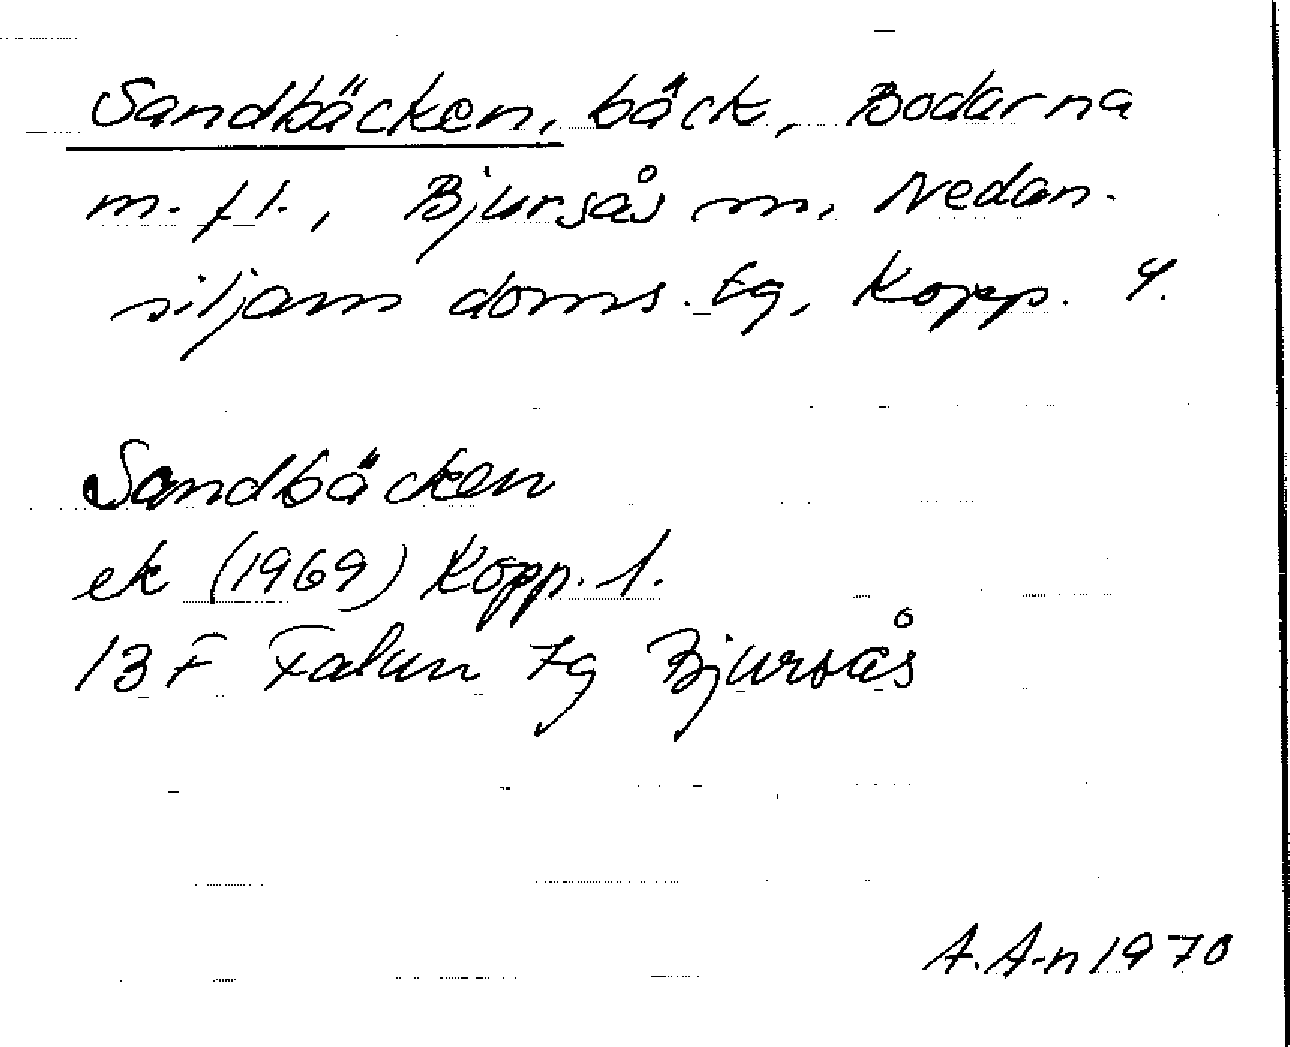 Sandbäcken, bäck, Bodarna
m. fl., Bjursås sn, Nedan-
siljans doms. tg, Kopp. l.
Sandbäcken
ek (1969) Kopp. l.
13 F Falun 7g Bjursås
A. A-n 1970